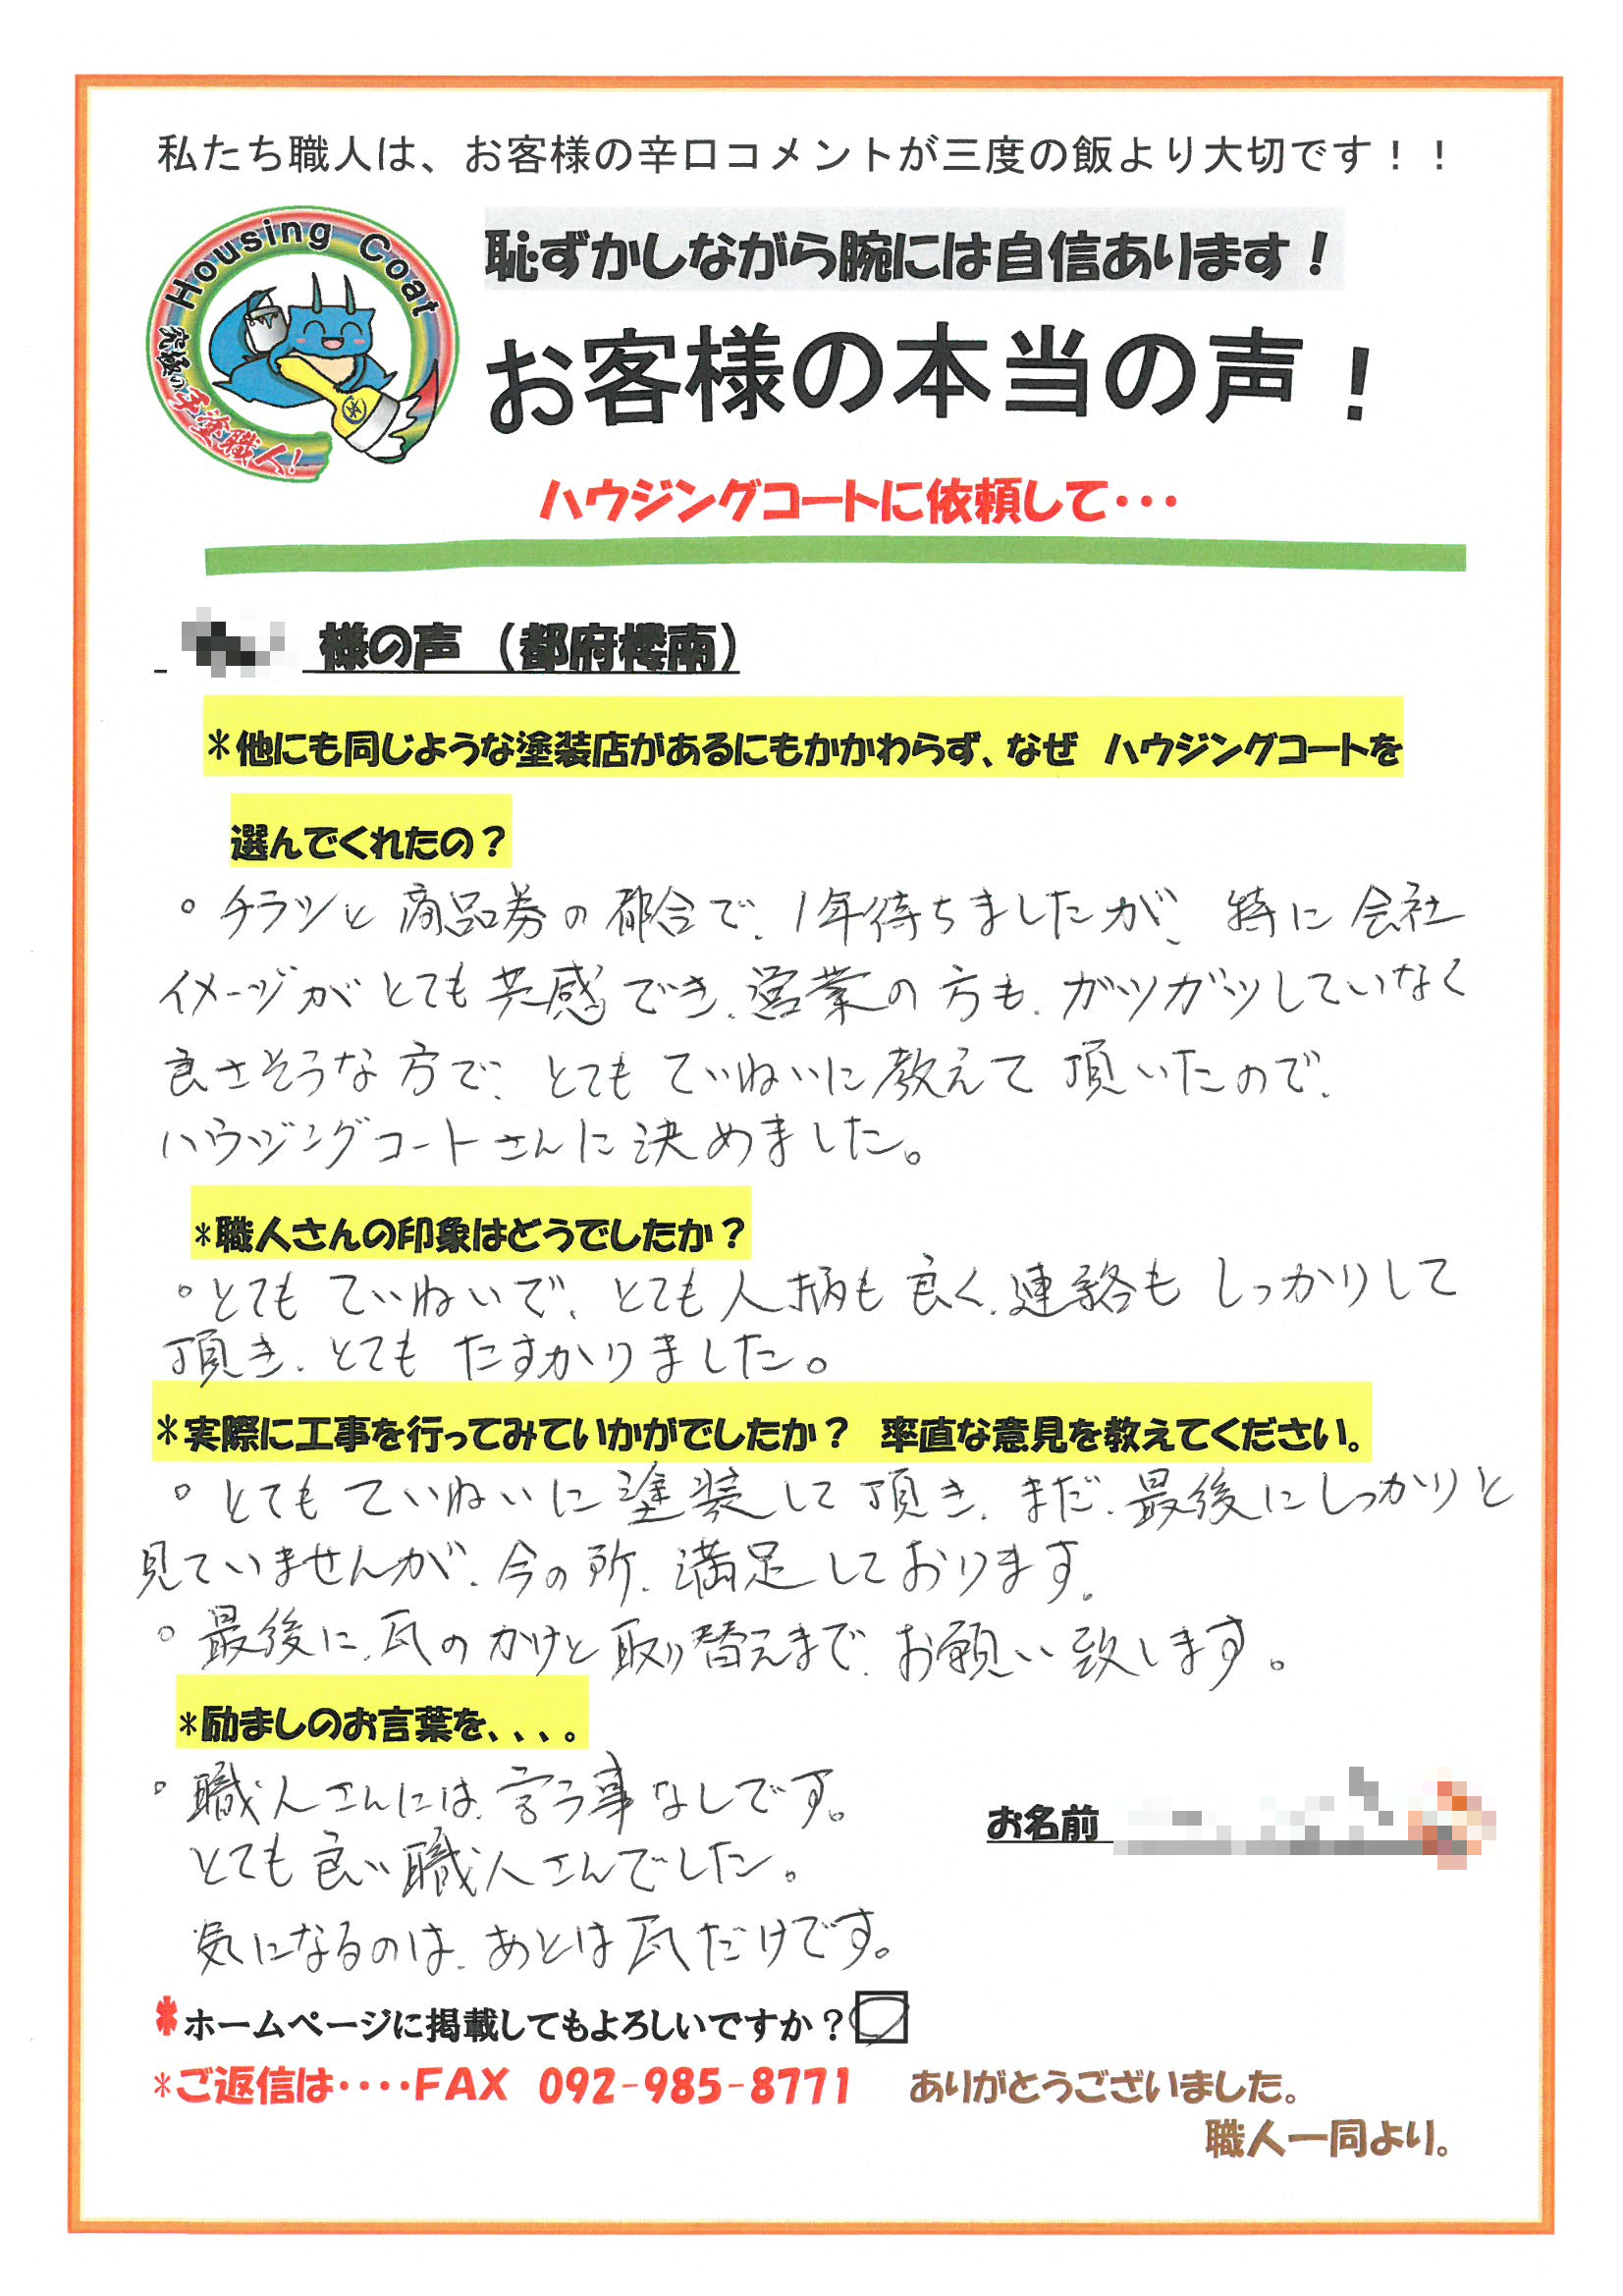 私たち職人は、お客様の辛口コメントが三度の飯より大切です！！
Housing Coat
究極の手塗職人！
恥ずかしながら腕には自信あります！
お客様の本当の声！
ハウジングコートに依頼して・・・
様の声（都府楼南）
＊他にも同じような塗装店があるにもかかわらず、なぜ　ハウジングコートを
選んでくれたの？
。チラシと商品券の都合で、1年待ちましたが、特に会社
イメージがとても共感でき、営業の方も、ガツガツしていなく
良さそうな方で、とてもていねいに教えて頂いたので、
ハウジングコートさんに決めました。
＊職人さんの印象はどうでしたか？
。とてもていねいで、とても人柄も良く、連絡もしっかりして
頂き、とてもたすかりました。
＊実際に工事を行ってみていかがでしたか？　率直な意見を教えてください。
。とてもていねいに塗装して頂き、まだ、最後にしっかりと
見ていませんが、今の所、満足しております。
。最後に、瓦のかけと取り替えまで、お願い致します。
＊励ましのお言葉を、、、。
。職人さんには、言う事なしです。
お名前
とても良い職人さんでした。
気になるのは、あとは瓦だけです。
＊ホームページに掲載してもよろしいですか？
＊ご返信は・・・・FAX　092-985-8771　ありがとうございました。
職人一同より。